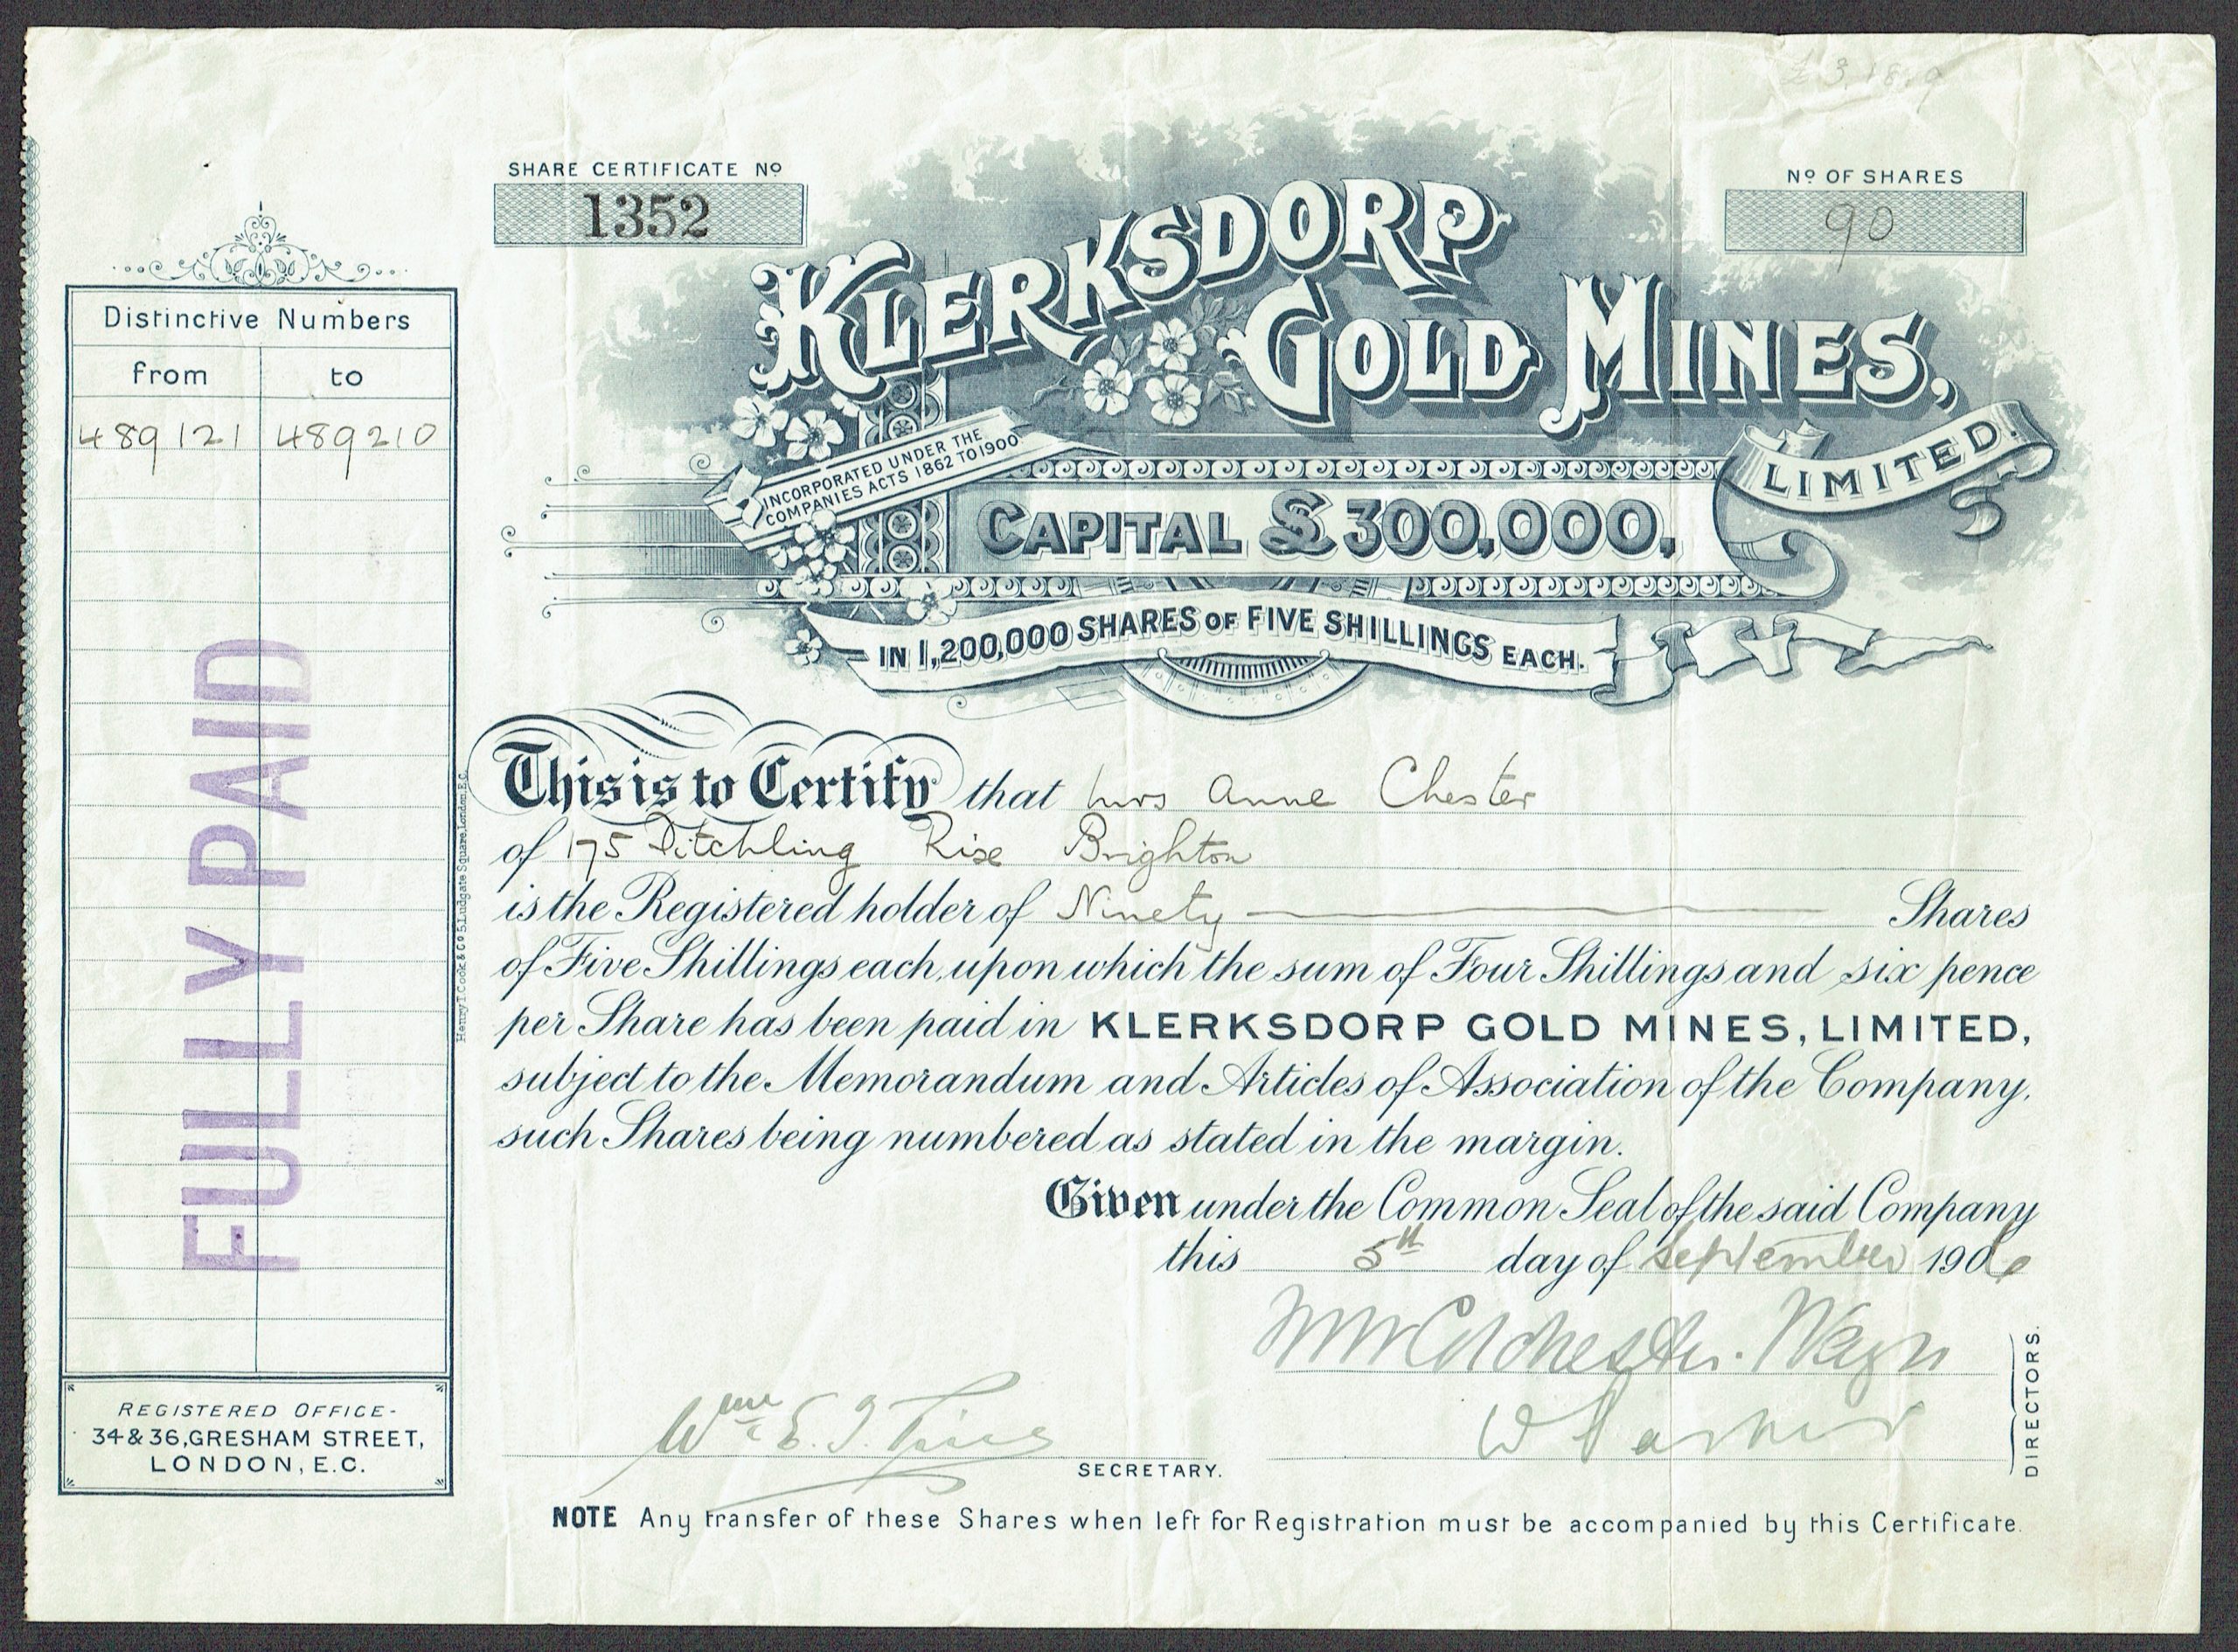 £3.18.9
SHARE CERTIFICATE Nº
1352
Nº OF SHARES
90
KLERKSDORP
GOLD MINES,
LIMITED.
INCORPORATED UNDER THE
COMPANIES ACTS 1862 TO 1900
CAPITAL £300,000,
IN 1,200,000 SHARES OF FIVE SHILLINGS EACH.
Distinctive Numbers
from to
489121 489210
FULLY PAID
REGISTERED OFFICE-
34 & 36, GRESHAM STREET,
LONDON, E.C.
Henry T. Cook & Co 5, Ludgate Square, London, E.C.
This is to Certify that Mrs Anne Chester
of 175 Ditchling Rise Brighton
is the Registered holder of Ninety Shares
of Five Shillings each, upon which the sum of Four Shillings and six pence
per Share has been paid in KLERKSDORP GOLD MINES, LIMITED,
subject to the Memorandum and Articles of Association of the Company,
such Shares being numbered as stated in the margin.
Given under the Common Seal of the said Company
this 5th day of September 1906
Colchester-
W
DIRECTORS.
Wm E. J.
SECRETARY.
NOTE Any transfer of these Shares when left for Registration must be accompanied by this Certificate.